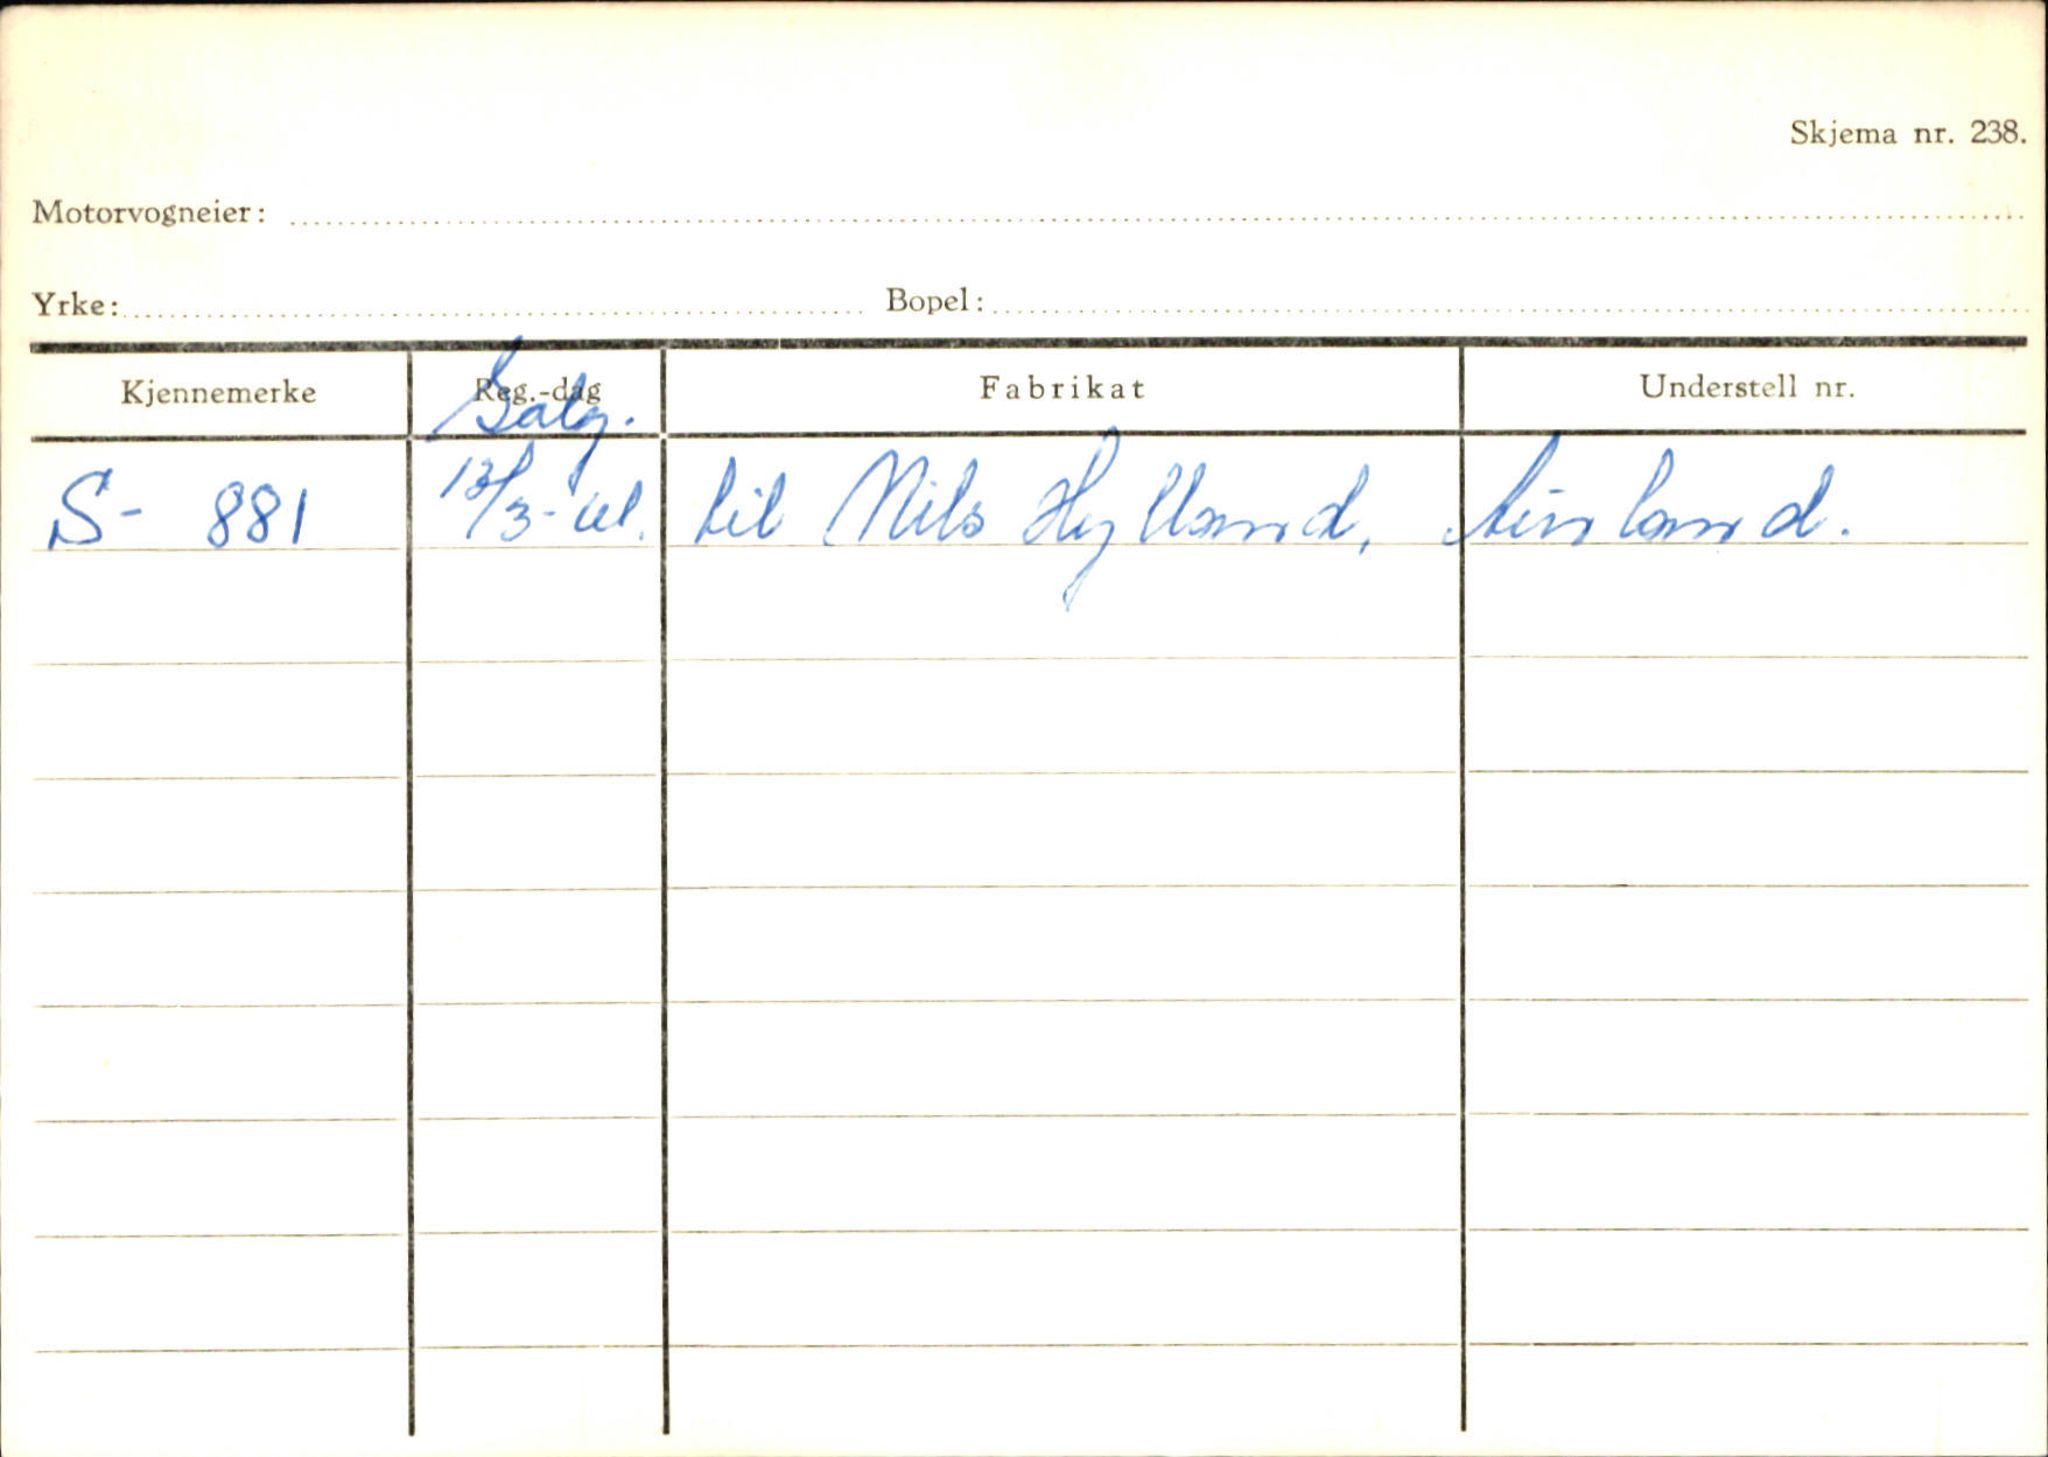 Skjema nr. 238.
Motorvogneier:
Yrke: Bopel:
Kjennemerke Reg.-dag Fabrikat Understell nr.
Salg.
S- 881 13/3-61. til Nils Hylland, Aurland.